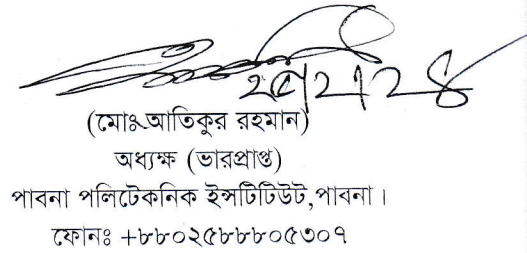 ২৫/২/২৪
(মোঃ আতিকুর রহমান)
অধ্যক্ষ (ভারপ্রাপ্ত)
পাবনা পলিটেকনিক ইন্সটিটিউট,পাবনা।
ফোনঃ +৮৮০২৫৮৮৮০৫৩০৭